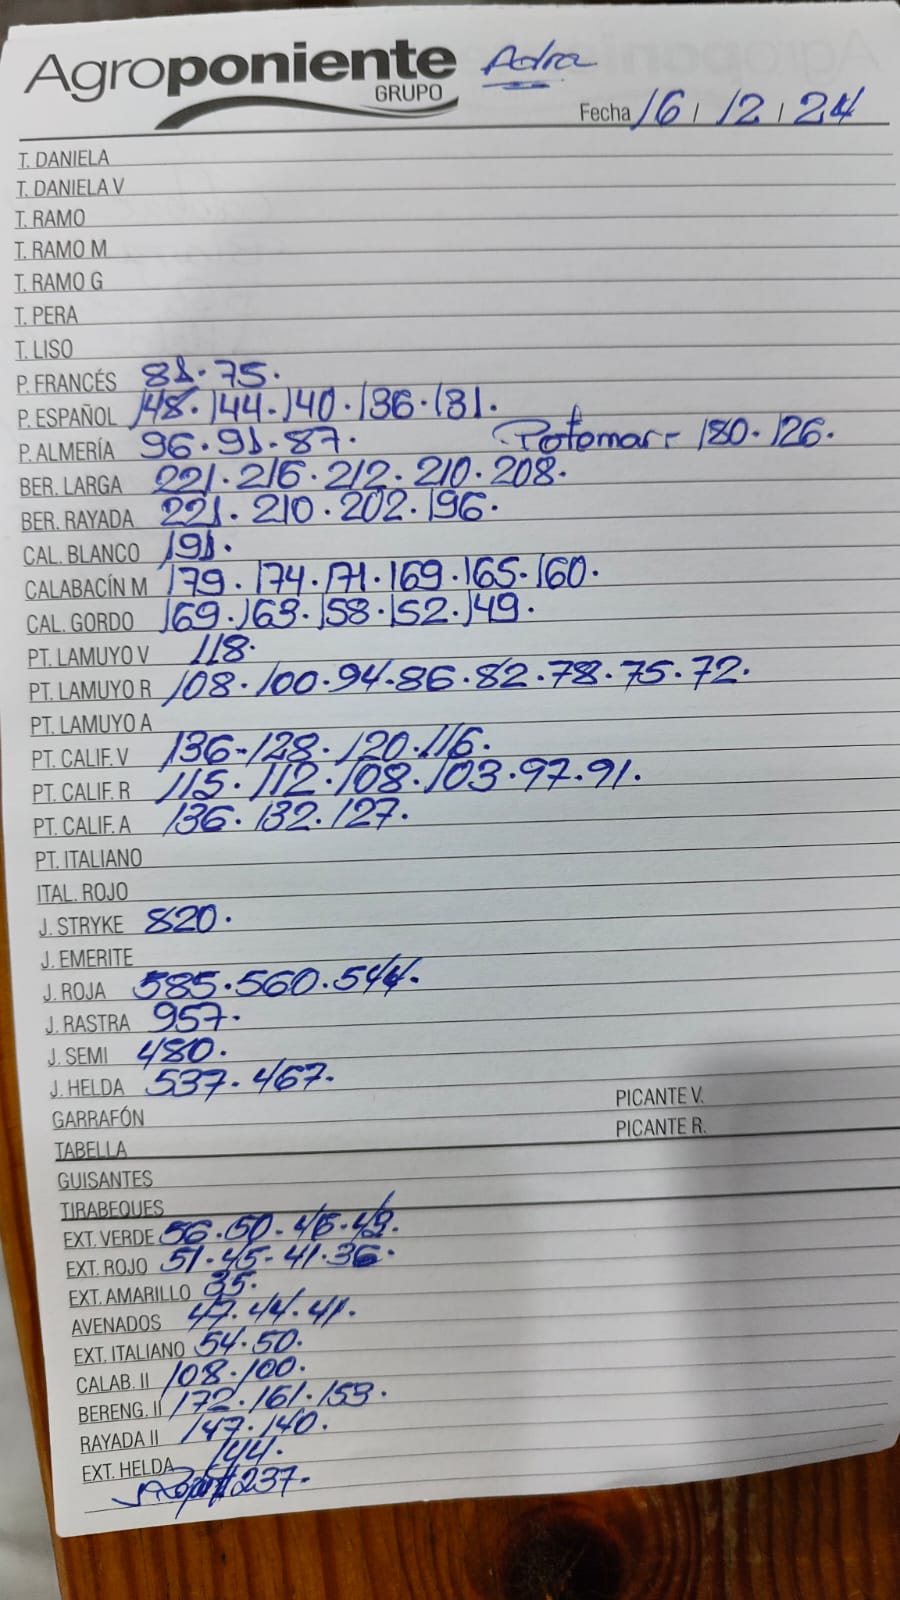 Agroponiente Adra
GRUPO
Fecha 16 / 12 / 24
T. DANIELA
T. DANIELA V
T. RAMO
T. RAMO M
T. RAMO G
T. PERA
T. LISO
P. FRANCÉS 81. 75.
P. ESPAÑOL 148. 144. 140. 136. 131.
P. ALMERÍA 96. 91. 87. Potomar- 180. 126.
BER. LARGA 221. 216. 212. 210. 208.
BER. RAYADA 221. 210. 202. 196.
CAL. BLANCO 191.
CALABACÍN M 179. 174. 171. 169. 165. 160.
CAL. GORDO 169. 163. 158. 152. 149.
PT. LAMUYO V 118.
PT. LAMUYO R 108. 100. 94. 86. 82. 78. 75. 72.
PT. LAMUYO A
PT. CALIF. V 136- 128. 120. 116.
PT. CALIF. R 115. 112. 108. 103. 97. 91.
PT. CALIF. A 136. 132. 127.
PT. ITALIANO
ITAL. ROJO
J. STRYKE 820.
J. EMERITE
J. ROJA 585. 560. 544.
J. RASTRA 957.
J. SEMI 480.
J. HELDA 537. 467.
GARRAFÓN PICANTE V.
TABELLA PICANTE R.
GUISANTES
TIRABEQUES
EXT. VERDE 56. 50-
EXT. ROJO 51. 45- 41. 36.
EXT. AMARILLO 35.
AVENADOS 47. 44. 41.
EXT. ITALIANO 54. 50.
CALAB. II 108. 100.
BERENG. II 172. 161. 153.
RAYADA II 147. 140.
EXT. HELDA 144.
237.